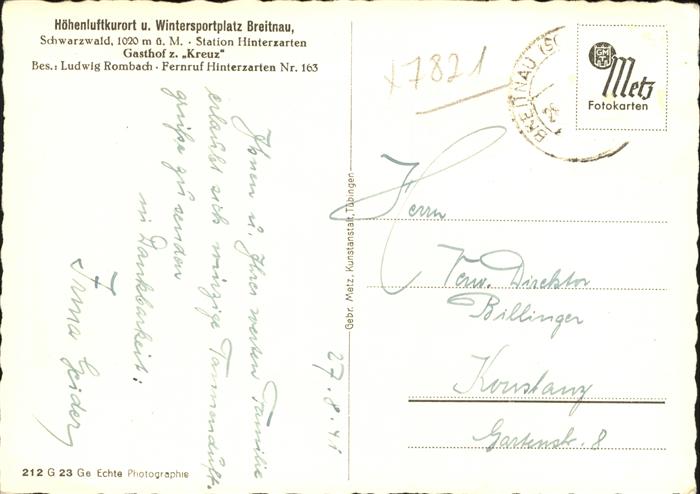 Höhenluftkurort u. Wintersportplatz Breitnau,
Schwarzwald, 1020 m ü. M. · Station Hinterzarten
Gasthof z. „Kreuz"
Bes.: Ludwig Rombach · Fernruf Hinterzarten Nr. 163
x7821
BREITNAU (S
Metz
Fotokarten
27.8.41
Ihnen u. Ihrer werten Familie
erlaubt sich winzige Tannenduft-
grüße zu senden
in Dankbarkeit:
Irma Geider
Gebr. Metz, Kunstanstalt, Tübingen
Herrn
Verw. Direktor
Billinger
Konstanz
Gartenstr. 8
212 G 23 Ge Echte Photographie